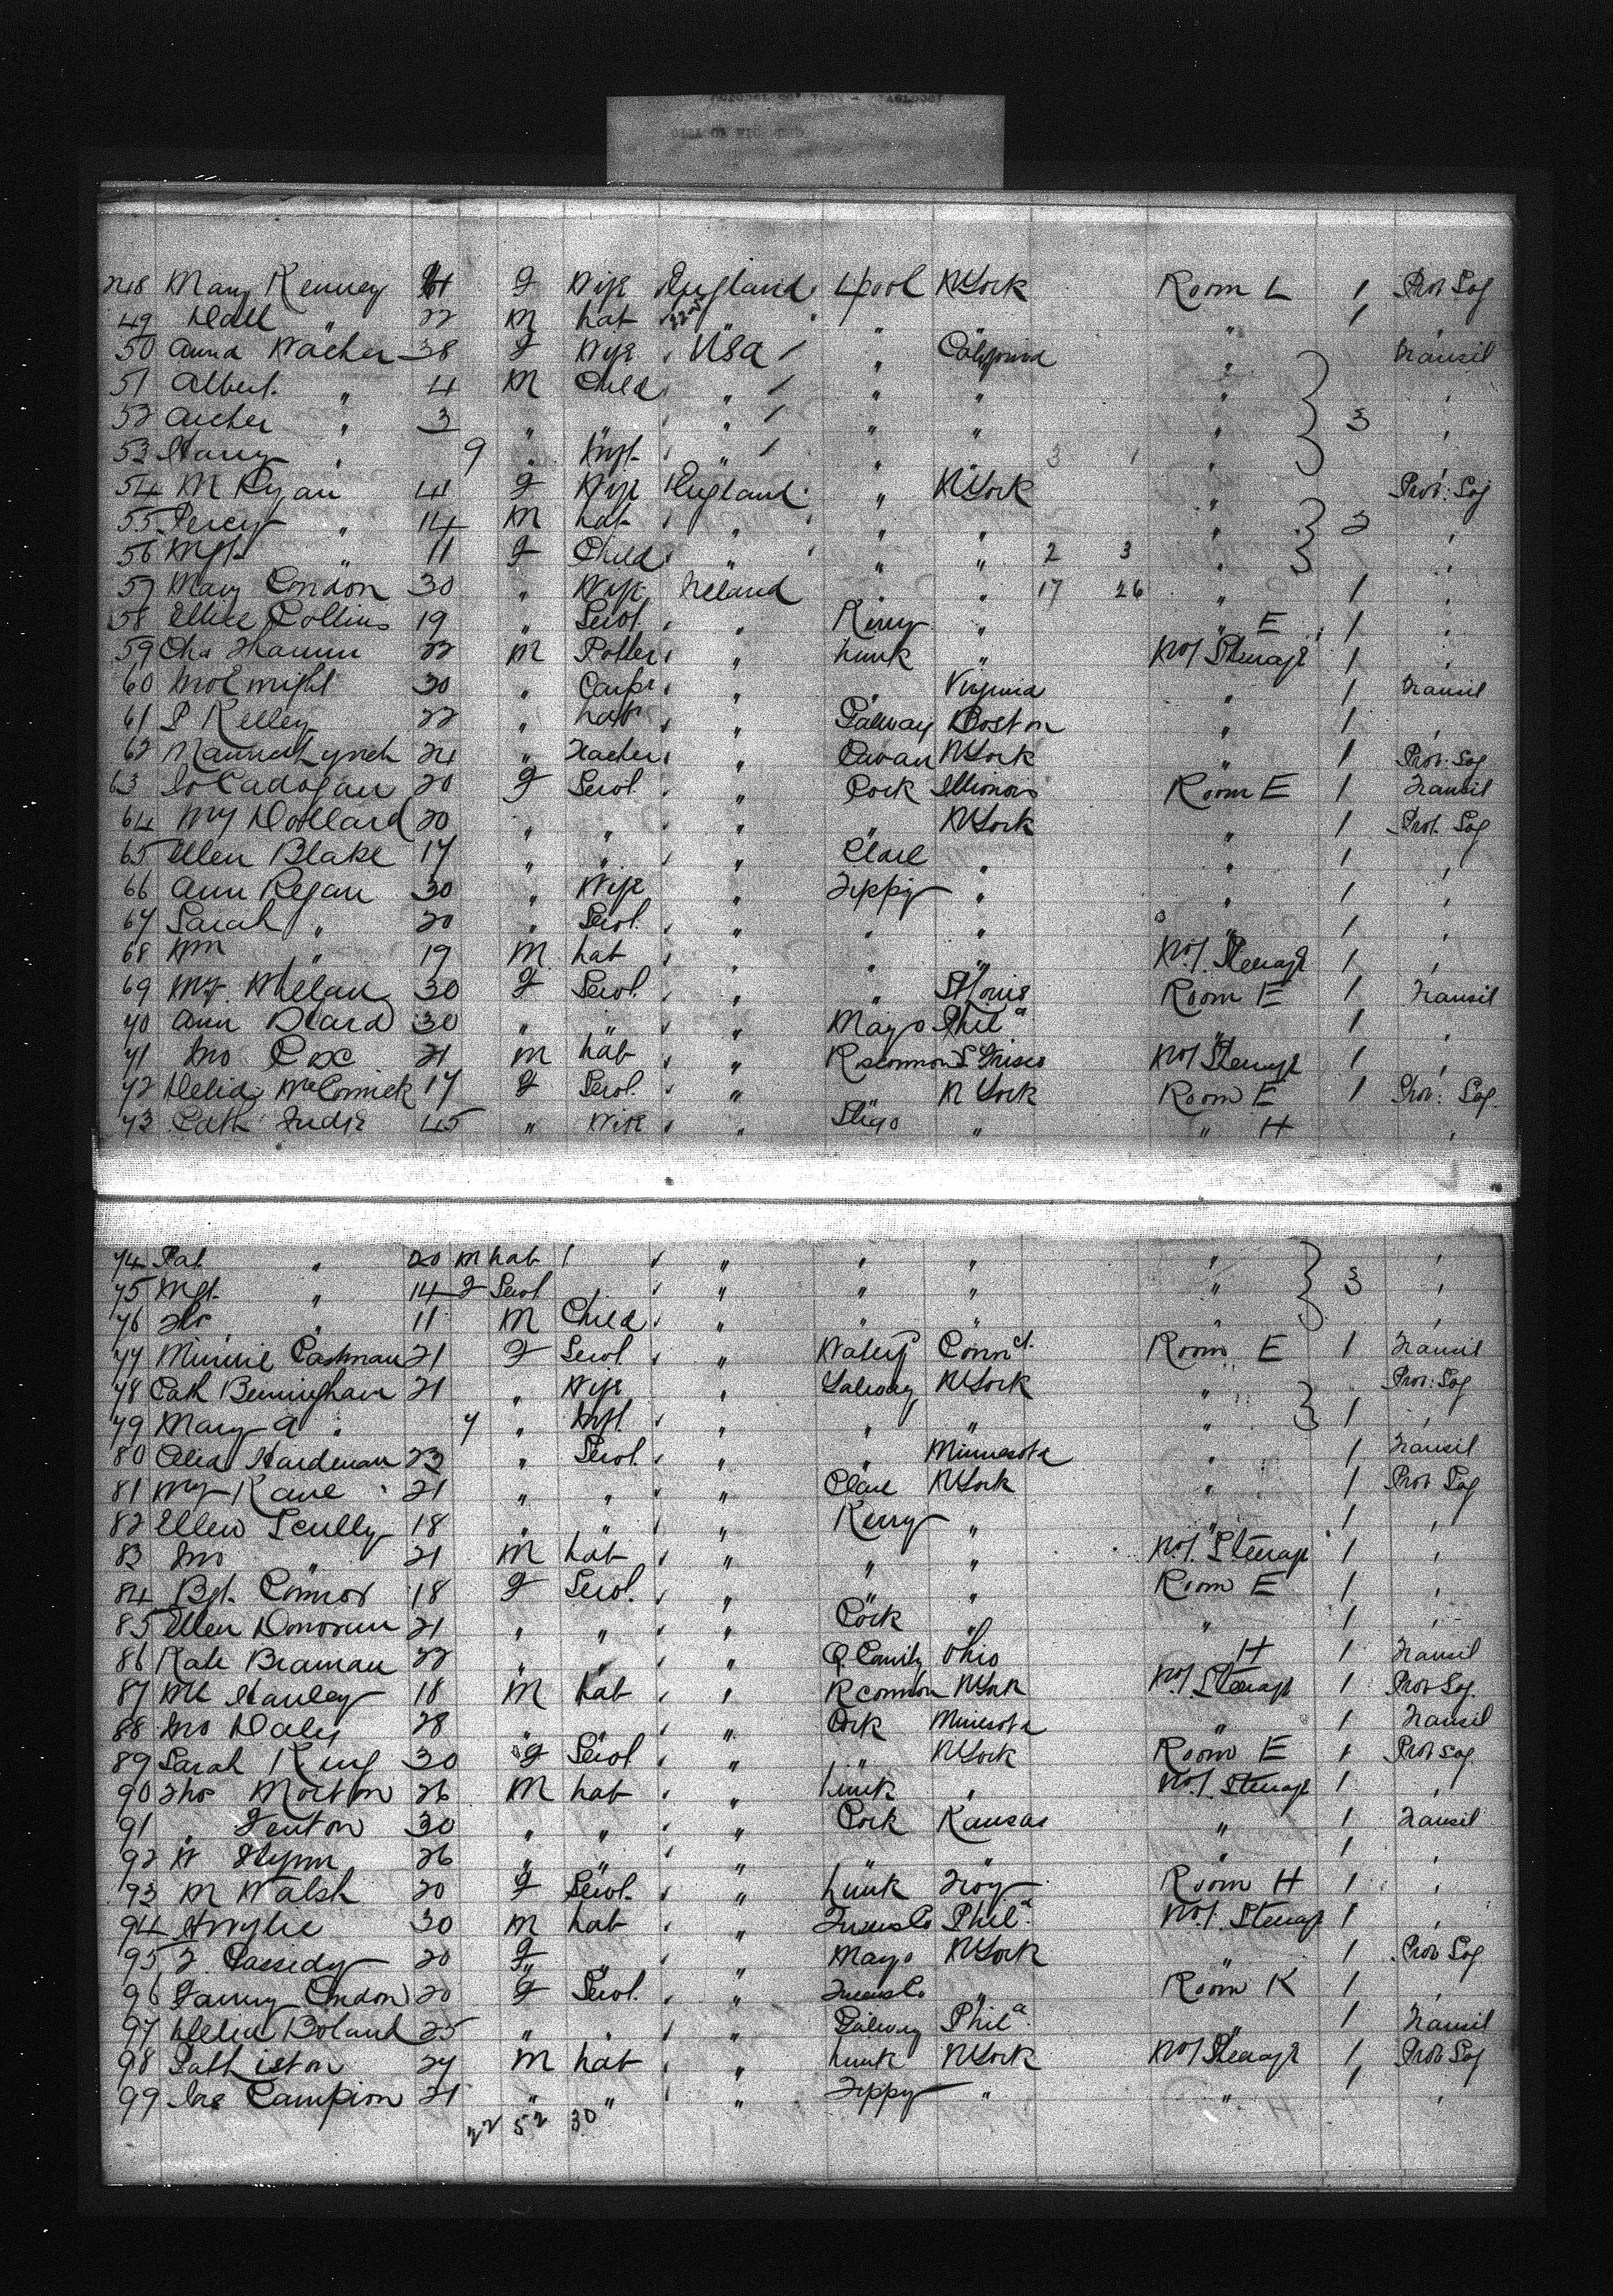 248 Mary Kenney 41 F Wife England L'pool N York Room L 1 Prot Soj
49 " 22 M Lab " " " " 1 "
50 Anna Wacher 38 F Wife USA " California " Transit
51 Albert " 4 M Child " " " " "
52 Archer " 3 " " " " " " 3 "
53 Harry " 9 " Inft " " " 3 1 " "
54 M Ryan 41 F Wife England " N York " Prot: Soj
55 Percy " 14 M Lab " " " " 2 "
56 Mgt " 11 F Child " " " 2 3 " "
57 Mary Condon 30 " Wife Ireland " " 17 26 " 1 "
58 Ellie Collins 19 " Servt " Kerry " " E 1 "
59 Chs 22 M Potter " Limk " No 1 Steerage 1 "
60 Jno Enright 30 " Carpr " " Virginia " 1 Transit
61 P Kelley 22 " Lab " Galway Boston " 1 "
62 Lynch 24 " Teacher " Cavan N York " 1 Prot. Soj
63 Jo Cadogan 20 F Servt " Cork Illinois Room E 1 Transit
64 My Dollard 20 " " " " N York " 1 Prot. Soj
65 Ellen Blake 17 " " " Clare " " 1 "
66 Ann Regan 30 " Wife " Tippy " " 1 "
67 Sarah " 20 " Servt " " " " 1 "
68 Wm " 19 M Lab " " " No 1. Steerage 1 "
69 My. Whelan 30 F Servt " " St Louis Room E 1 Transit
70 Ann Beard 30 " " " Mayo Phila " 1 "
71 Jno Cox 21 M Lab " Rscommon S Frisco No 1 Steerage 1 "
72 Delia McCormick 17 F Servt. " " N York Room E 1 Prot: Soj.
73 Cath 45 " Wife " Sligo " " H "
74 Pat " 20 M Lab " " " " "
75 Mgt. " 14 F Servt " " " " 3 "
76 Tho " 11 M Child " " " " "
77 Minnie Cashman 21 F Servt " Waterf Connct. Room E 1 Transit
78 Cath Bermingham 21 " Wife " Galway N York " Prot: Soj
79 Mary A " 7 " Inft. " " " " 1 "
80 Celia Hardeman 23 " Servt " " Minnesota " 1 Transit
81 My Kane 21 " " " Clare N York " 1 Prot Soj
82 Ellen Scully 18 " " " Kerry " " 1 "
83 Jno " 21 M Lab " " " No 1. Steerage 1 "
84 Bgt. Connor 18 F Servt. " " " Room E 1 "
85 Ellen Donovan 21 " " " Cork " " 1 "
86 Kate Braman 22 " " " Q. County Ohio H 1 Transit
87 Ml Hanley 18 M Lab " Rcommon N York No 1. Steerage 1 Prot Soj.
88 Jno Daly 28 " " " Cork Minesota " 1 Transit
89 Sarah King 30 F Servt " " N York Room E 1 Prot Soj
90 Thos Morton 26 M Lab " Limk " No. 1. Steerage 1 "
91 " Fenton 30 " " " Cork Kansas " 1 Transit
92 W Flynn 26 " " " " " " 1 "
93 M Walsh 20 F Servt. " Limk Troy Room H 1 "
94 30 M Lab " Queens Co Phila. No. 1. Steerage 1 "
95 T. Cassidy 20 F " " Mayo N York " 1 Prot Soj
96 Fanny Condon 20 F Servt. " Queens Co " Room K 1 "
97 Delia Boland 25 " " " Galway Phila. " 1 Transit
98 27 M Lab " Limk N York No 1 Steerage 1 Prot Soj
99 Jno Campion 21 " " " Tippy " " 1 "
22 52 30